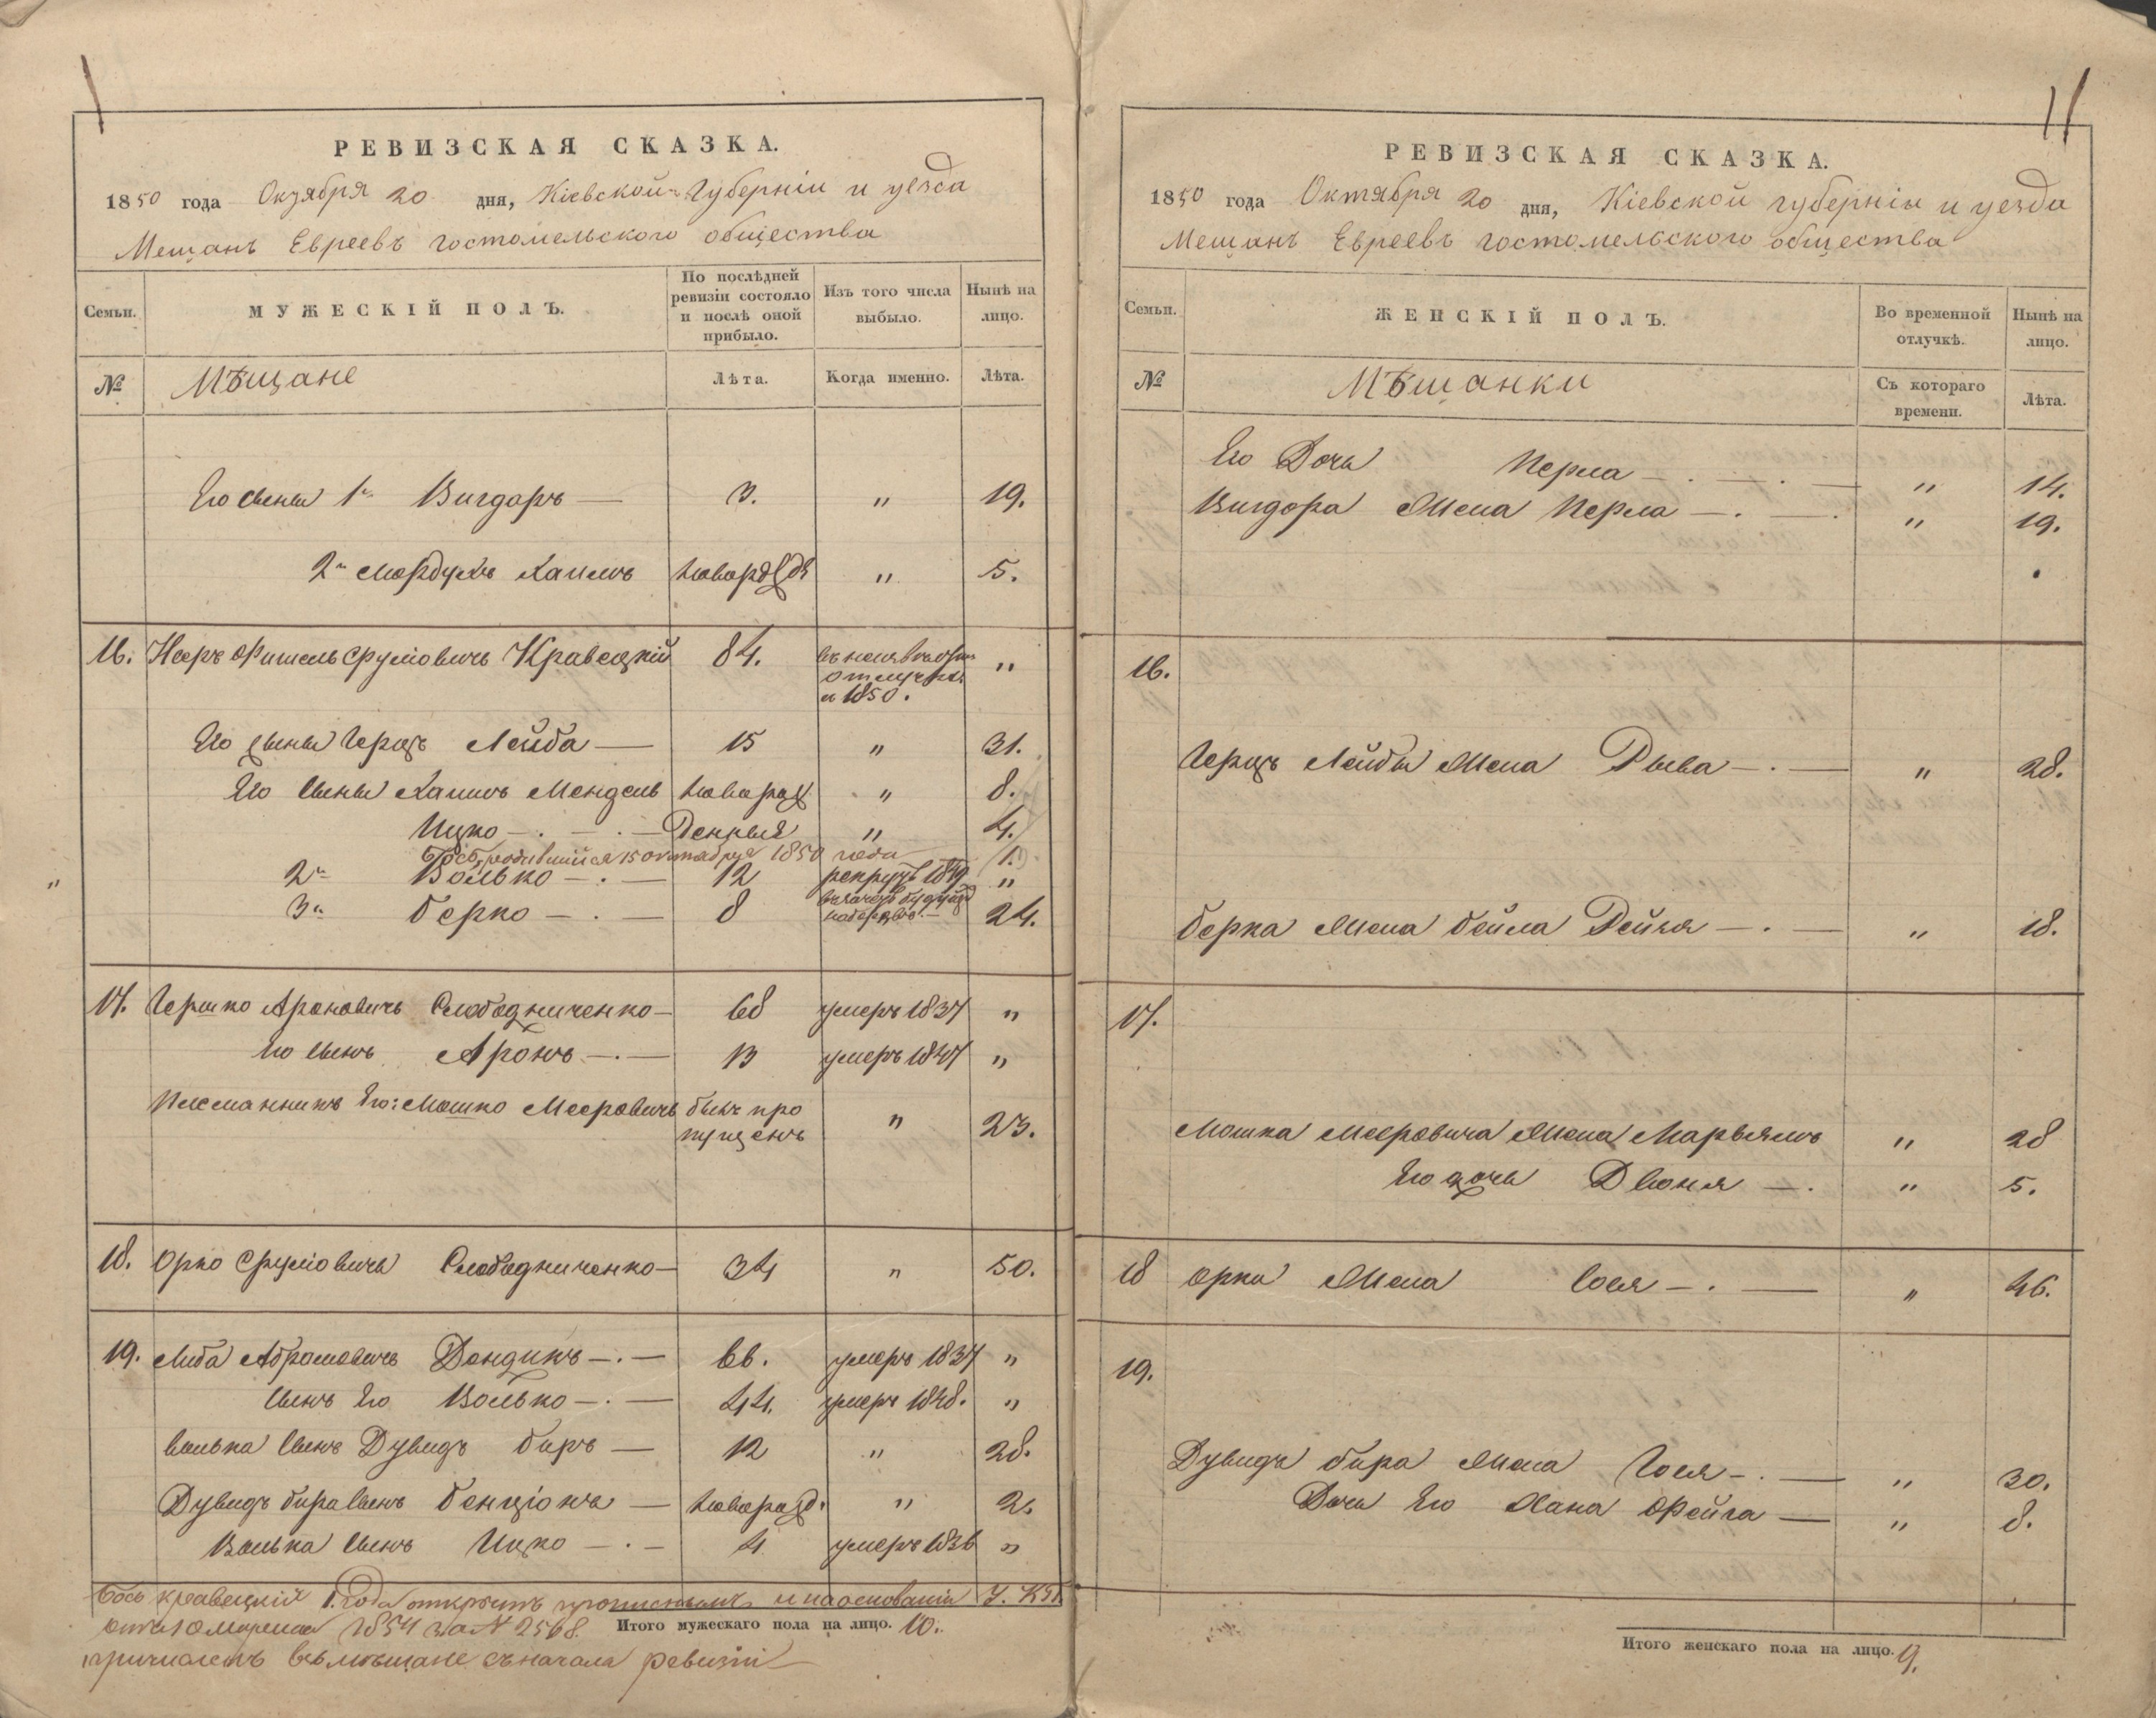 РЕВИЗСКАЯ СКАЗКА.
1850 года Октября 20 дня, Кіевской Губерніи и уезда
Мещанъ Евреевъ гостомельского общества
Семьи.
МУЖЕСКІЙ ПОЛЪ.
По послѣдней ревизіи состояло и послѣ оной прибыло.
Изъ того числа выбыло.
Нынѣ на лицо.
№ Мѣщане Лѣта. Когда именно. Лѣта.
Его сыны 1й Вигдоръ — 3. " 19.
2й Мордухъ Хаимъ новорожд " 5.
16. Фишель Срулiовичъ Кравецкій 84. отлучке съ 1850. "
Его сыны Герцъ Лейба — 15 " 31.
Его сыны Хаимъ Мендель новорож " 8.
Ицко —.—.— денныя " 4.
Іось, родившийся 15 октабря 1850 года 1.
2й Волько —.— 12 рекрутъ 1849 "
3й Берко —.— 8 24.
17. Гершко Ароновичъ Слободниченко — 68 умеръ 1837 "
Его сынъ Аронъ —.— 13 умеръ 1847 "
Племянникъ Его: Мошко Мееровичъ былъ про " 23.
пущенъ
18. Орко Срулiовичъ Слободниченко — 34 " 50.
19. Либа Абрамовичъ Дондикъ —.— 66. умеръ 1837 "
сынъ Его Волько —.— 44. умеръ 1848. "
Волька сынъ Дувидъ Биръ — 12 " 28.
Дувидъ Бира сынъ Бенціонъ — новорожд. " 2.
Волька сынъ Ицко —.— 4 умеръ 1836 "
Іось Кравецкій 1. года открытъ прописнымъ и на основаніи У. К. П.
отъ 10 1854 за № 2568. Итого мужескаго пола на лицо. 10.
причисленъ въ мѣщане съ начала ревизіи —
РЕВИЗСКАЯ СКАЗКА.
1850 года Октября 20 дня, Кіевской губерніи и уезда
Мещанъ Евреевъ гостомельского общества
Семьи.
ЖЕНСКІЙ ПОЛЪ.
Во временной отлучкѣ.
Нынѣ на лицо.
№ Мѣщанки Съ котораго времени. Лѣта.
Его Дочь Перла —.—.— " 14.
Вигдора Жена Перла —.—. " 19.
16.
Герцъ Лейбы Жена Рыва —.— " 28.
Берка Жена Бейла Рейзя —.— " 18.
17.
Мошка Мееровича Жена Марьямъ " 28
Его дочь Двоня —. " 5.
18 Орки Жена Сося —.— " 46.
19.
Дувидъ Бира Жена Гося —.— " 30.
Дочь Его Хана Фейга — " 8.
Итого женскаго пола на лицо. 9.